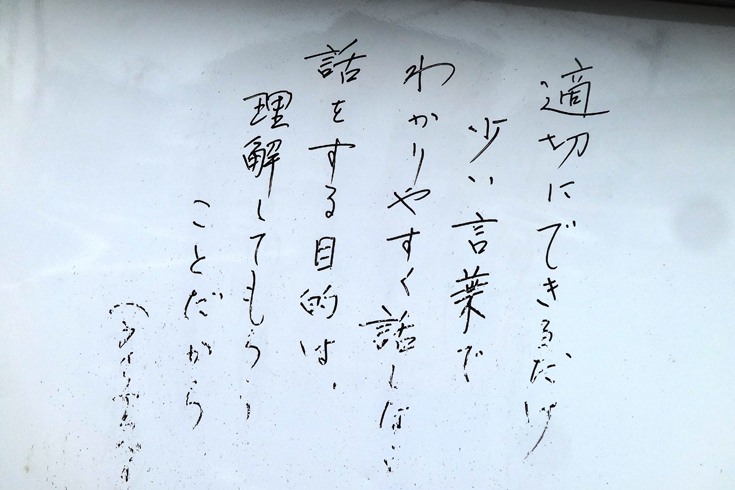 適切にできるだけ
少い言葉で
わかりやすく話しない
話をする目的は、
理解してもらう
ことだから